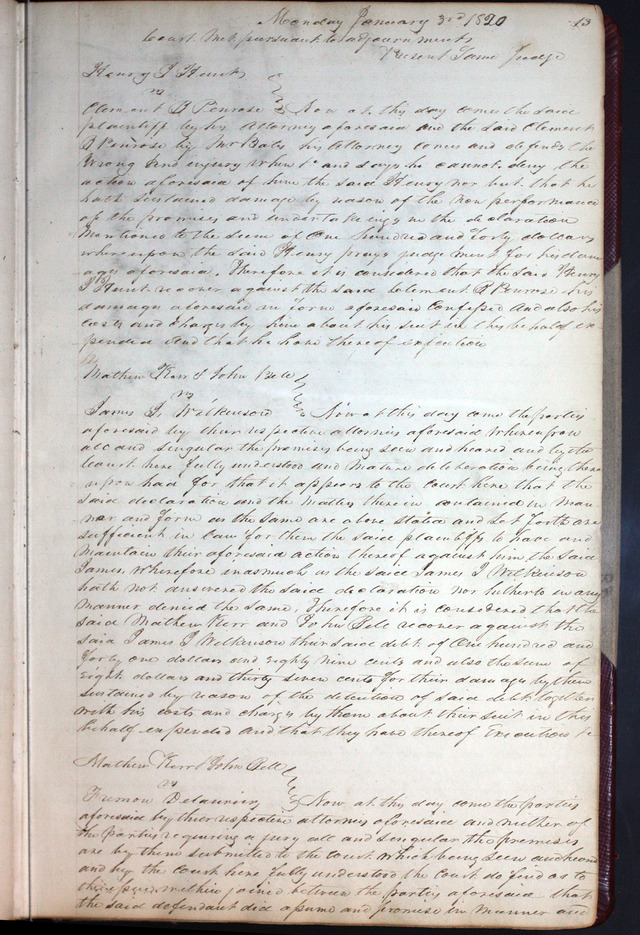 Monday January 3rd 1820
13
Court Met pursuant to adjournment
Present Same Judge
Henry J Hunt
vs
Clement B Penrose Now at this day comes the said
plaintiff by his Attorney aforesaid and the said Clement
B Penrose by his Attorney comes and defends the
Wrong and injury when &c and says he cannot deny the
action aforesaid of him the said Henry nor but that he
hath sustained damage by reason of the non performance
of the promises and undertakings in the declaration
mentioned to the sum of One hundred and forty dollars
whereupon the said Henry prays judgement for his dam
ages aforesaid. Therefore it is considered that the said Henry
J Hunt recover against the said Clement B Penrose his
damages aforesaid in form aforesaid Confessed and also his
costs and charges by him about his suit in this behalf ex
pended And that he have thereof execution
Mathew Kerr & John Bell
vs
James J. Wilkinson Now at this day come the parties
aforesaid by their respective attornies aforesaid whereupon
all and singular the premises being seen and heard and by the
Court here fully understood and mature deliberation being there
upon had for that it appears to the court here that the
said declaration and the matters therein contained in man
ner and form as the same are above stated and set forth are
sufficient in law for them the said plaintiffs to have and
maintain their aforesaid action thereof against him the said
James. Wherefore inasmuch as the said James J Wilkinson
hath not answered the said declaration nor hitherto in any
manner denied the same, Therefore it is considered that the
said Mathew Kerr and John Bell recover against the
said James J Wilkinson their said debt of One hundred and
forty one dollars and Eighty nine cents and also the sum of
Eight dollars and thirty seven cents for their damages by them
sustained by reason of the detention of said debt together
with his costs and charges by them about their suit in this
behalf expended and that they have thereof Execution &c
Mathew Kerr & John Bell
vs
Delauriere Now at this day come the parties
aforesaid by their respective attornies aforesaid and neither of
the parties requiring a jury all and singular the premises
are by them submitted to the court which being seen and heard
and by the court here fully understood the court do find as to
the within joined between the parties aforesaid that
the said defendant did assume and promise in manner and